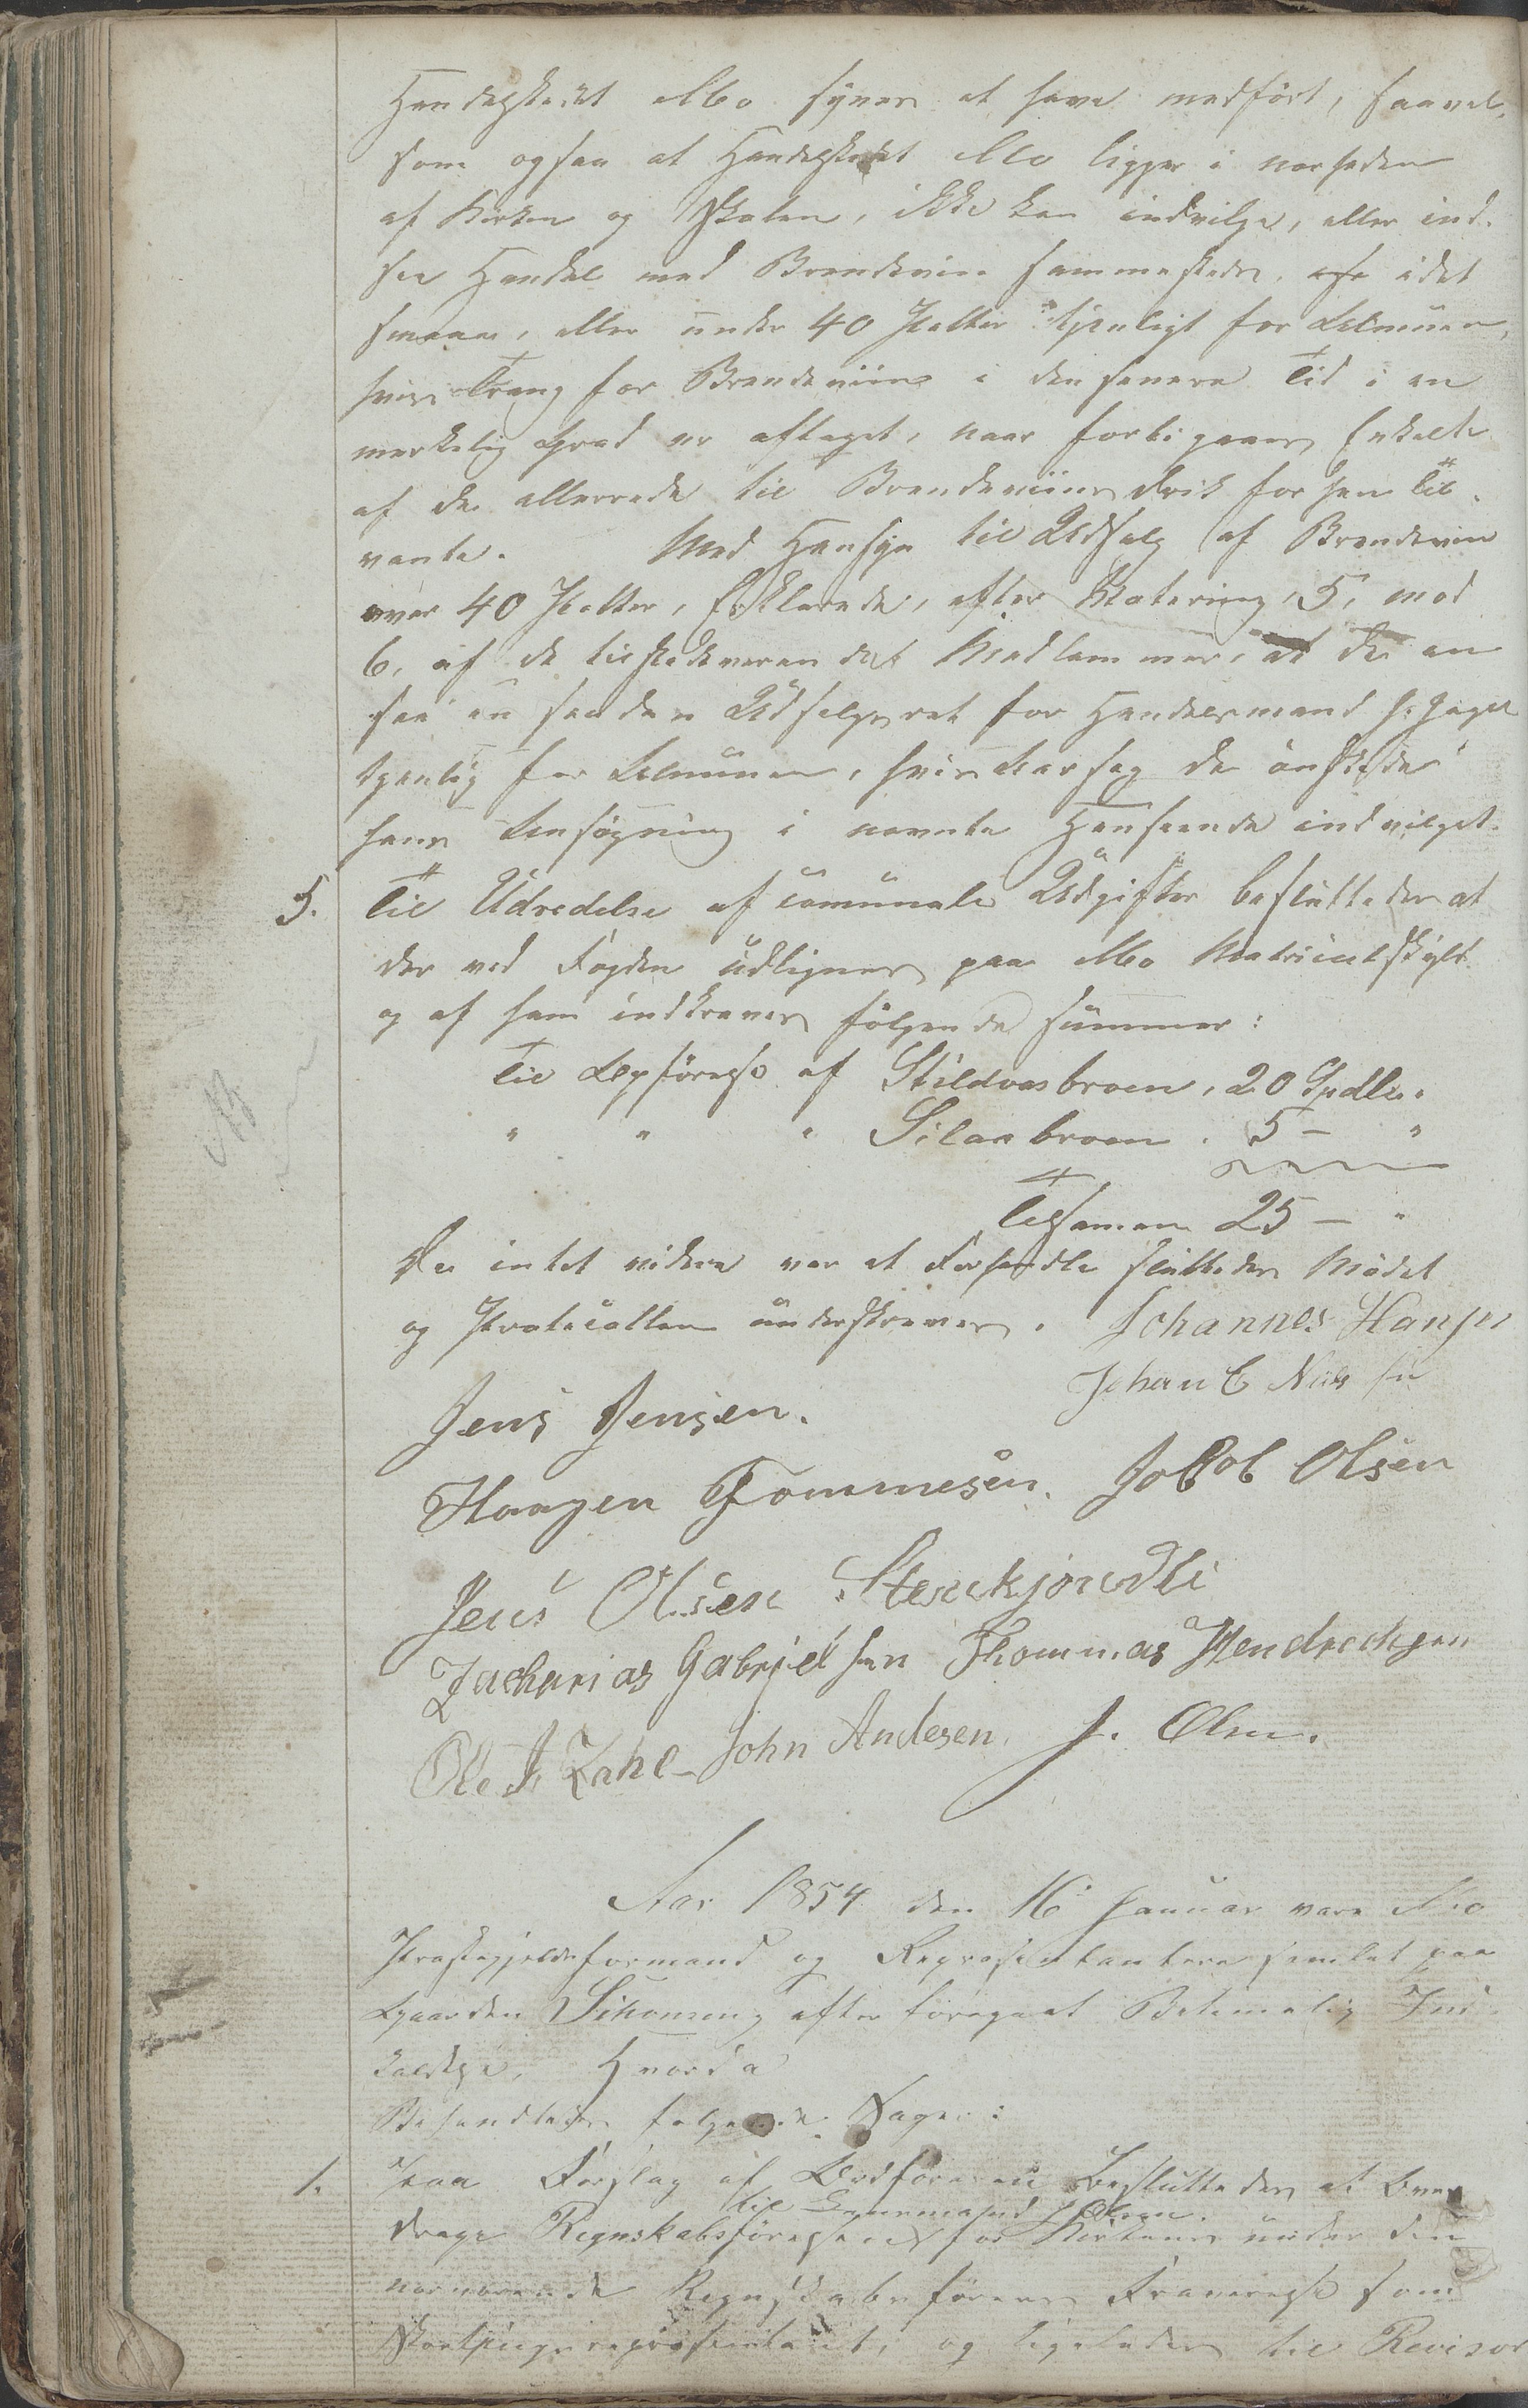 Handelstedet Mo synes at have medført, saavel-
som ogsaa at Handelstedet Mo ligger i nærheden
af Kirken og Skolen, ikke kan indvilge, eller ind-
see Handel med Brændeviin sammesteds, i det
smaae, eller under 40 Potter tjenligt for Almuen,
hvis Trang for Brændeviin i den senere Tid i en
merkelig Grad er aftaget, naar forbigaaes Enkelte
af de allerede til Brændeviins drik for hen til-
vante. Med Hensyn til Udsalg af Brændeviin
over 40 Potter, Erklærede, efter Votering, 5, mod
6, af de tilstedeværendes Medlemmer, at de an-
saa en saadan Udsalgsret for Handelsmand
tjenlig for Almuen, hvis Aarsag de ønskede
hans Ansøgning i nævnte Henseende indvilget.
5. Til Udredelse af comunale Udgifter besluttedes at
der ved Fogden udlignes paa Mo Matriculskyld
og af ham indkræves følgende summer:
Til Opførelse af Stildvasbroen, 20 Spdlr.
" " " Silaxbroen. 5 – "
Tilsamen 25 – "
Da intet videre var at Forhandle sluttedes Mødet
og Protocollen underskreves. Johannes Hansen
Johan C Nilsen
Jens Jensen.
Haagen Tommesen. Jakob Olsen
Jens Olsen Stenkjondli
Zacharias Gabrielsen Thommas Hendrechsen
Ole J. Zahl John Andesen, J. Olsen.
Aar 1854 den 16 Januar vare Mo
Præstegjelds formænd og Repræsentantere samlet paa
Gaarden Sihomeng efter foregaaet Betimelig Ind-
kaldelse, Hvorda
Behandledes følgende Sager:
1. Paa Forslag af Ordføreren Besluttedes at Over-
til J. Olsen.
drage Regnskabsførelsen for Kirkens under den
nærværende Regnskabsførers Fraværelse som
Storthingsrepræsentant, og ligeledes til Revisor